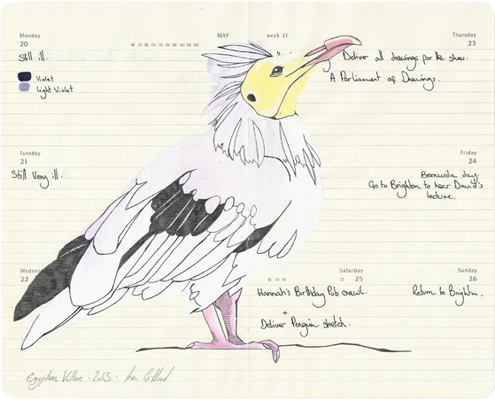 Monday
20
Still ill.
Violet
Light Violet
MAY
week 21
Thursday
23
Deliver all drawings for the show.
A Parliament of Drawings.
Tuesday
21
Still Very ill.
Friday
24
Bermuda day.
Go to Brighton to hear David's
lecture.
Wednesday
22
Saturday
25
Hannah's Birthday Pub crawl.
+
Deliver Penguin sketch.
Sunday
26
Return to Brighton.
Egyptian Vulture - 2013 -